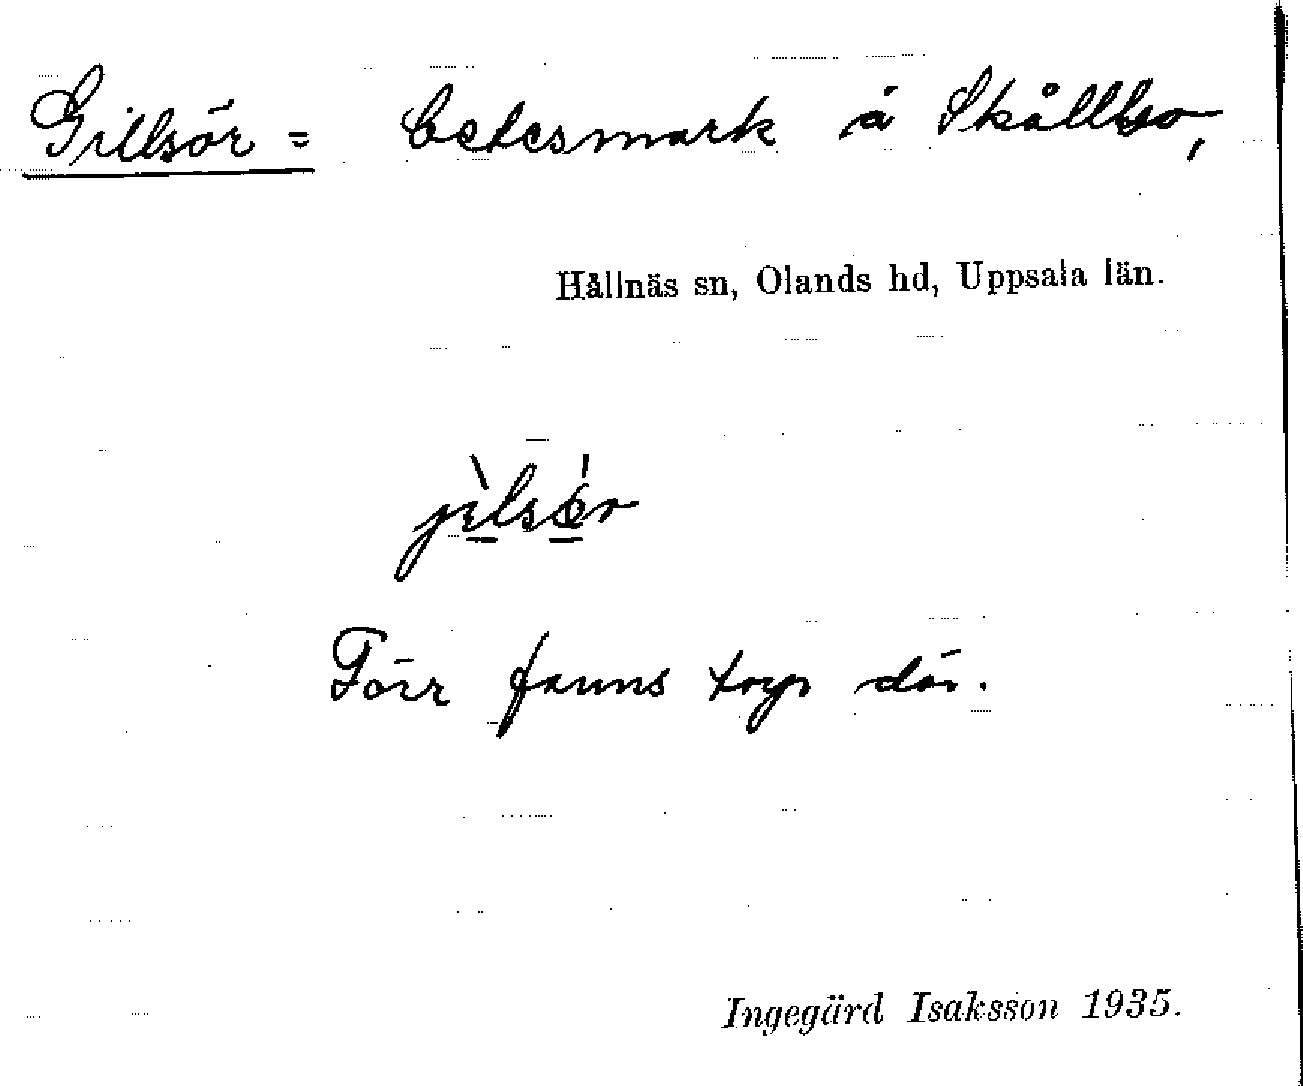 Gillsör = betesmark å Skållbo,
Hållnäs sn, Olands hd, Uppsala län.
Förr fanns torp där.
Ingegärd Isaksson 1935.